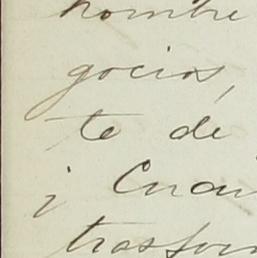 nombre
gocios,
te de
¡ Cuan
trasfor